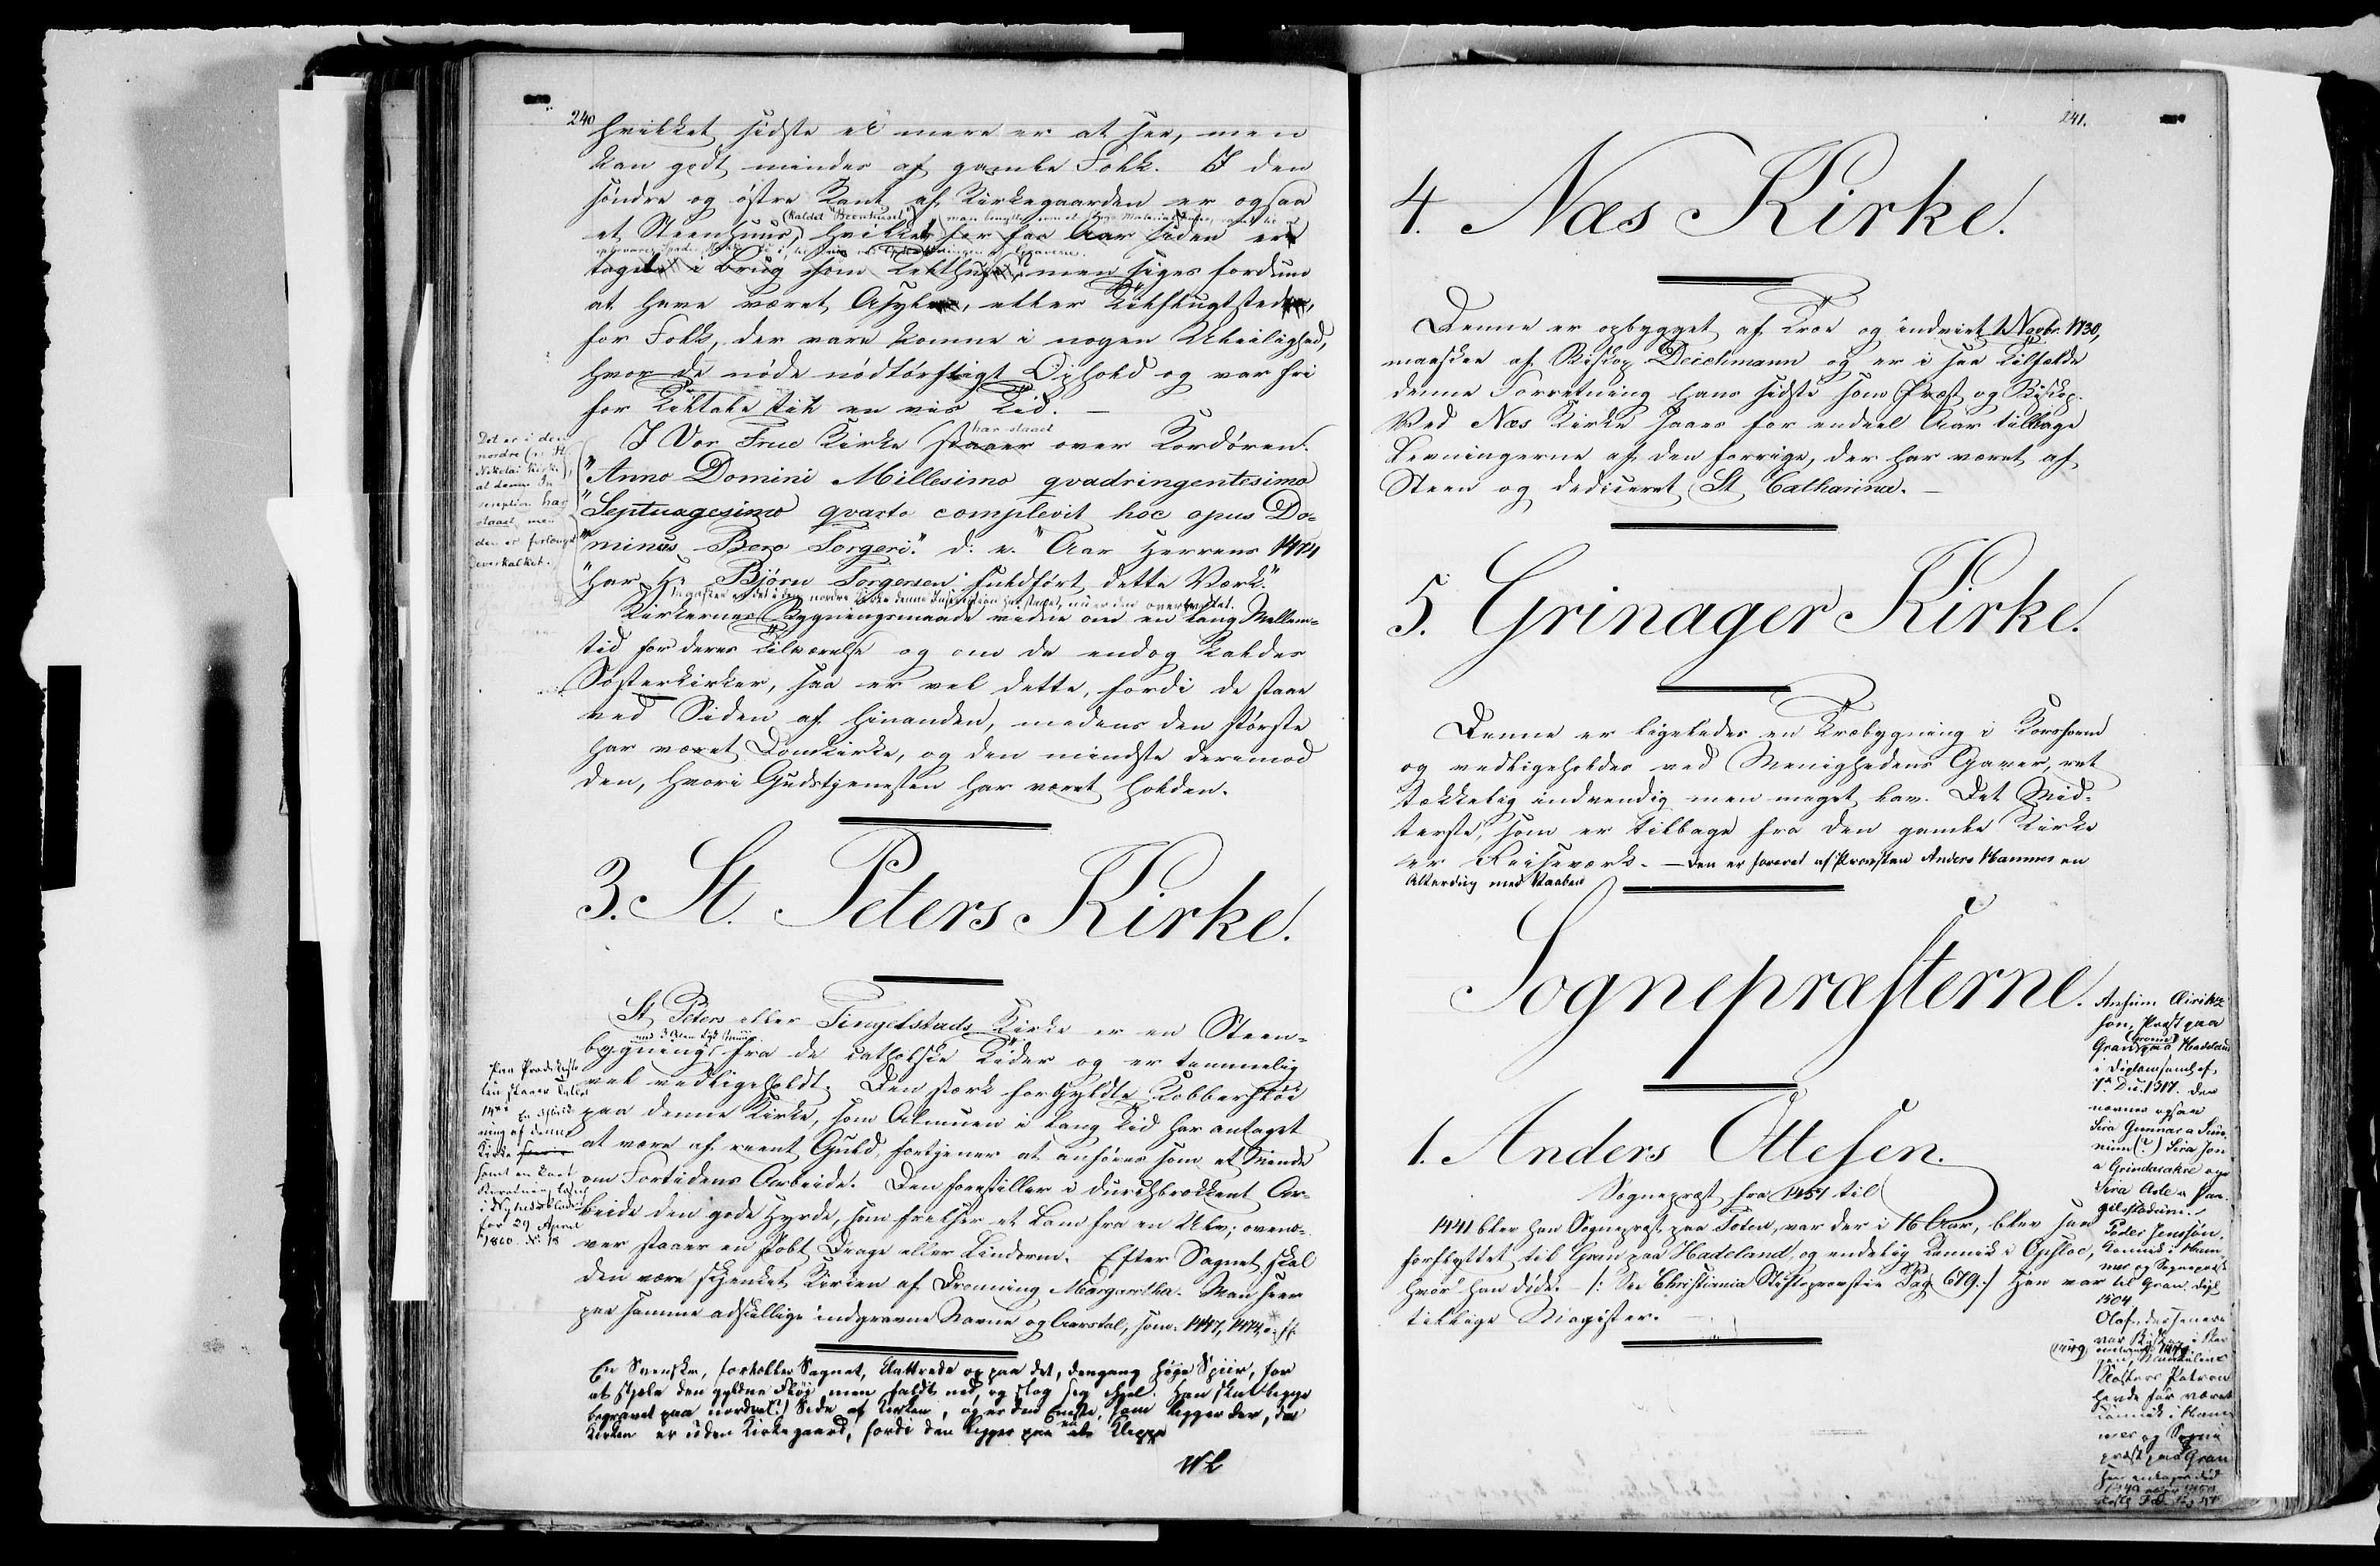 240
hvilket sidste ei mere er at see, men
kan godt mindes af gamle Folk. I den
søndre og østre Kant af Kirkegaarden er ogsaa
(kaldet "Steenhuset")
et Steenhuus, hvilket for faa Aar siden er
taget i Brug som Ligthuus, men siges fordum
at have været Asyl, eller Tilflugtsted,
for Folk, der vare komne i nogen Uleilighed,
hvor de nøde nødtørftigt Ophold og var fri
for Tiltale til en vis Tid. —
har staaet
I Vor Frue Kirke staaer over Kordøren:
"Anno Domini Millesimo qvadringentesimo
"Septuagesimo qvarto complevit hoc opus Do=
"minus Bero Torgeri." d. e. "Aar Herrens 1474
"har Hr Bjørn Torgersen fuldført dette Værk."
Maaskee er det i den nordre Kirke denne Inscription har staaet, nu er den overkalket.
Kirkernes Bygningsmaade vidne om en lang Mellem=
tid for deres Tilværelse og om de endog kaldes
Søsterkirker, saa er vel dette, fordi de staae
ved Siden af hinanden, medens den største
har været Domkirke, og den mindste derimod
den, hvori Gudstjenesten har været holden.
Det er i den
nordre (o: St
Nikolai Kirke),
at denne In
scription har
staaet, men
den er forlængst
overkalket.
3. St. Peters Kirke.
St Peters eller Tingelstads Kirke er en Steen=
med 3 Alen tyk Muur.
bygning fra de catholske Tider og er temmelig
vel vedligeholdt. Den stærk forgyldte Kobberfløi
paa denne Kirke, som Almuen i lang Tid har antaget
at være af reent Guld, fortjener at anføres som et Minde
om Fortidens Arbeide. Den forestiller i durchbrokkent Ar=
beide den gode Hyrde, som frelser et Lam fra en Ulv; oveno=
ver staaer en støbt Drage eller Lindorm. Efter Sagnet skal
den være skjenket Kirken af Dronning Margaretha. Man seer
paa samme adskillige indgravne Navne og Aarstal, som: 1447, 1474 o. fl.
Paa Prædikesto
len staaer
En Afbild=
ning af denne
Kirke
samt en kort
Beretning
i Nyhedsblad
for 29 April
1860. No 18
En Svenske, fortæller Sagnet, klattrede op paa det, dengang høje Spiir, for
at stjæle den gyldne Fløj men faldt ned, og slog sig ihjel. Han skal ligge
begravet paa nordre(?) Side af Kirken, og er den Eneste, som ligger der, da
Kirken er uden Kirkegaard, fordi den ligger paa en Klippe
241.
4. Næs Kirke.
Denne er opbygget af Træ og indviet 1 Novbr. 1730,
maaskee af Biskop Deichmann og er i saa Tilfælde
denne Forretning hans sidste som Præst og Biskop.
Ved Næs Kirke saaes for endeel Aar tilbage
Levningerne af den forrige, der har været af
Steen og dediceret St Catharina. —
5. Grinager Kirke.
Denne er ligeledes en Træbygning i Korsform
og vedligeholdes ved Menighedens Gaver, ret
tækkelig indvendig men meget lav. Det Mid=
terste, som er tilbage fra den gamle Kirke
er Reisværk. — Den er foræret af Provsten Anders Hammer en
Alterdug med Vaaben
Sognepræsterne.
1. Anders Ottesen.
Sognepræst fra 1457 til
1441 blev han Sognepræst paa Toten, var der i 16 Aar, blev saa
forflyttet til Gran paa Hadeland, og endelig Kannik i Opsloe,
hvor han døde. — /: See Christiania Stiftsprovstie Pag 679 :/ Han var
tillige Magister. —
Arnfinn Eiriks
son, Præst paa
Gran paa Hadeland
i Diplom
7de Dec. 1317. Der
nævnes ogsaa
Sira Gunnar a
(?) Sira Jon
a Grindarakre og
Sira Asle a
Peder Jenssøn,
Kannik i Ham
mer og Sognepræst
til Gran. Dipl
1504
Olaf, der senere
var Biskop
Klosters Patron
havde før været
Kannik i Ham
mer og Sogne
præst paa Gran